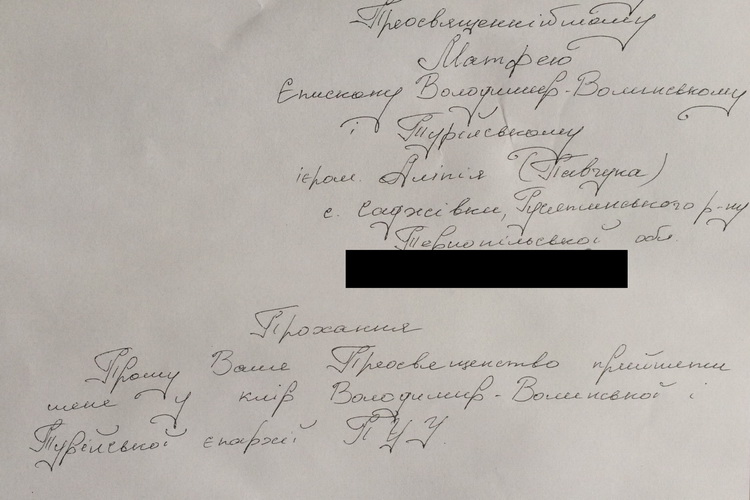 Преосвященнійшому
Матфею
Єпископу Володимир-Волинському
і Турійському
ієром. Аліпія (Павчука)
с. Саджівки, Гусятинського р-ну
Тернопільської обл.
Прохання
Прошу Ваше Преосвященство прийняти
мене у клір Володимир-Волинської і
Турійської єпархії ПЦУ.